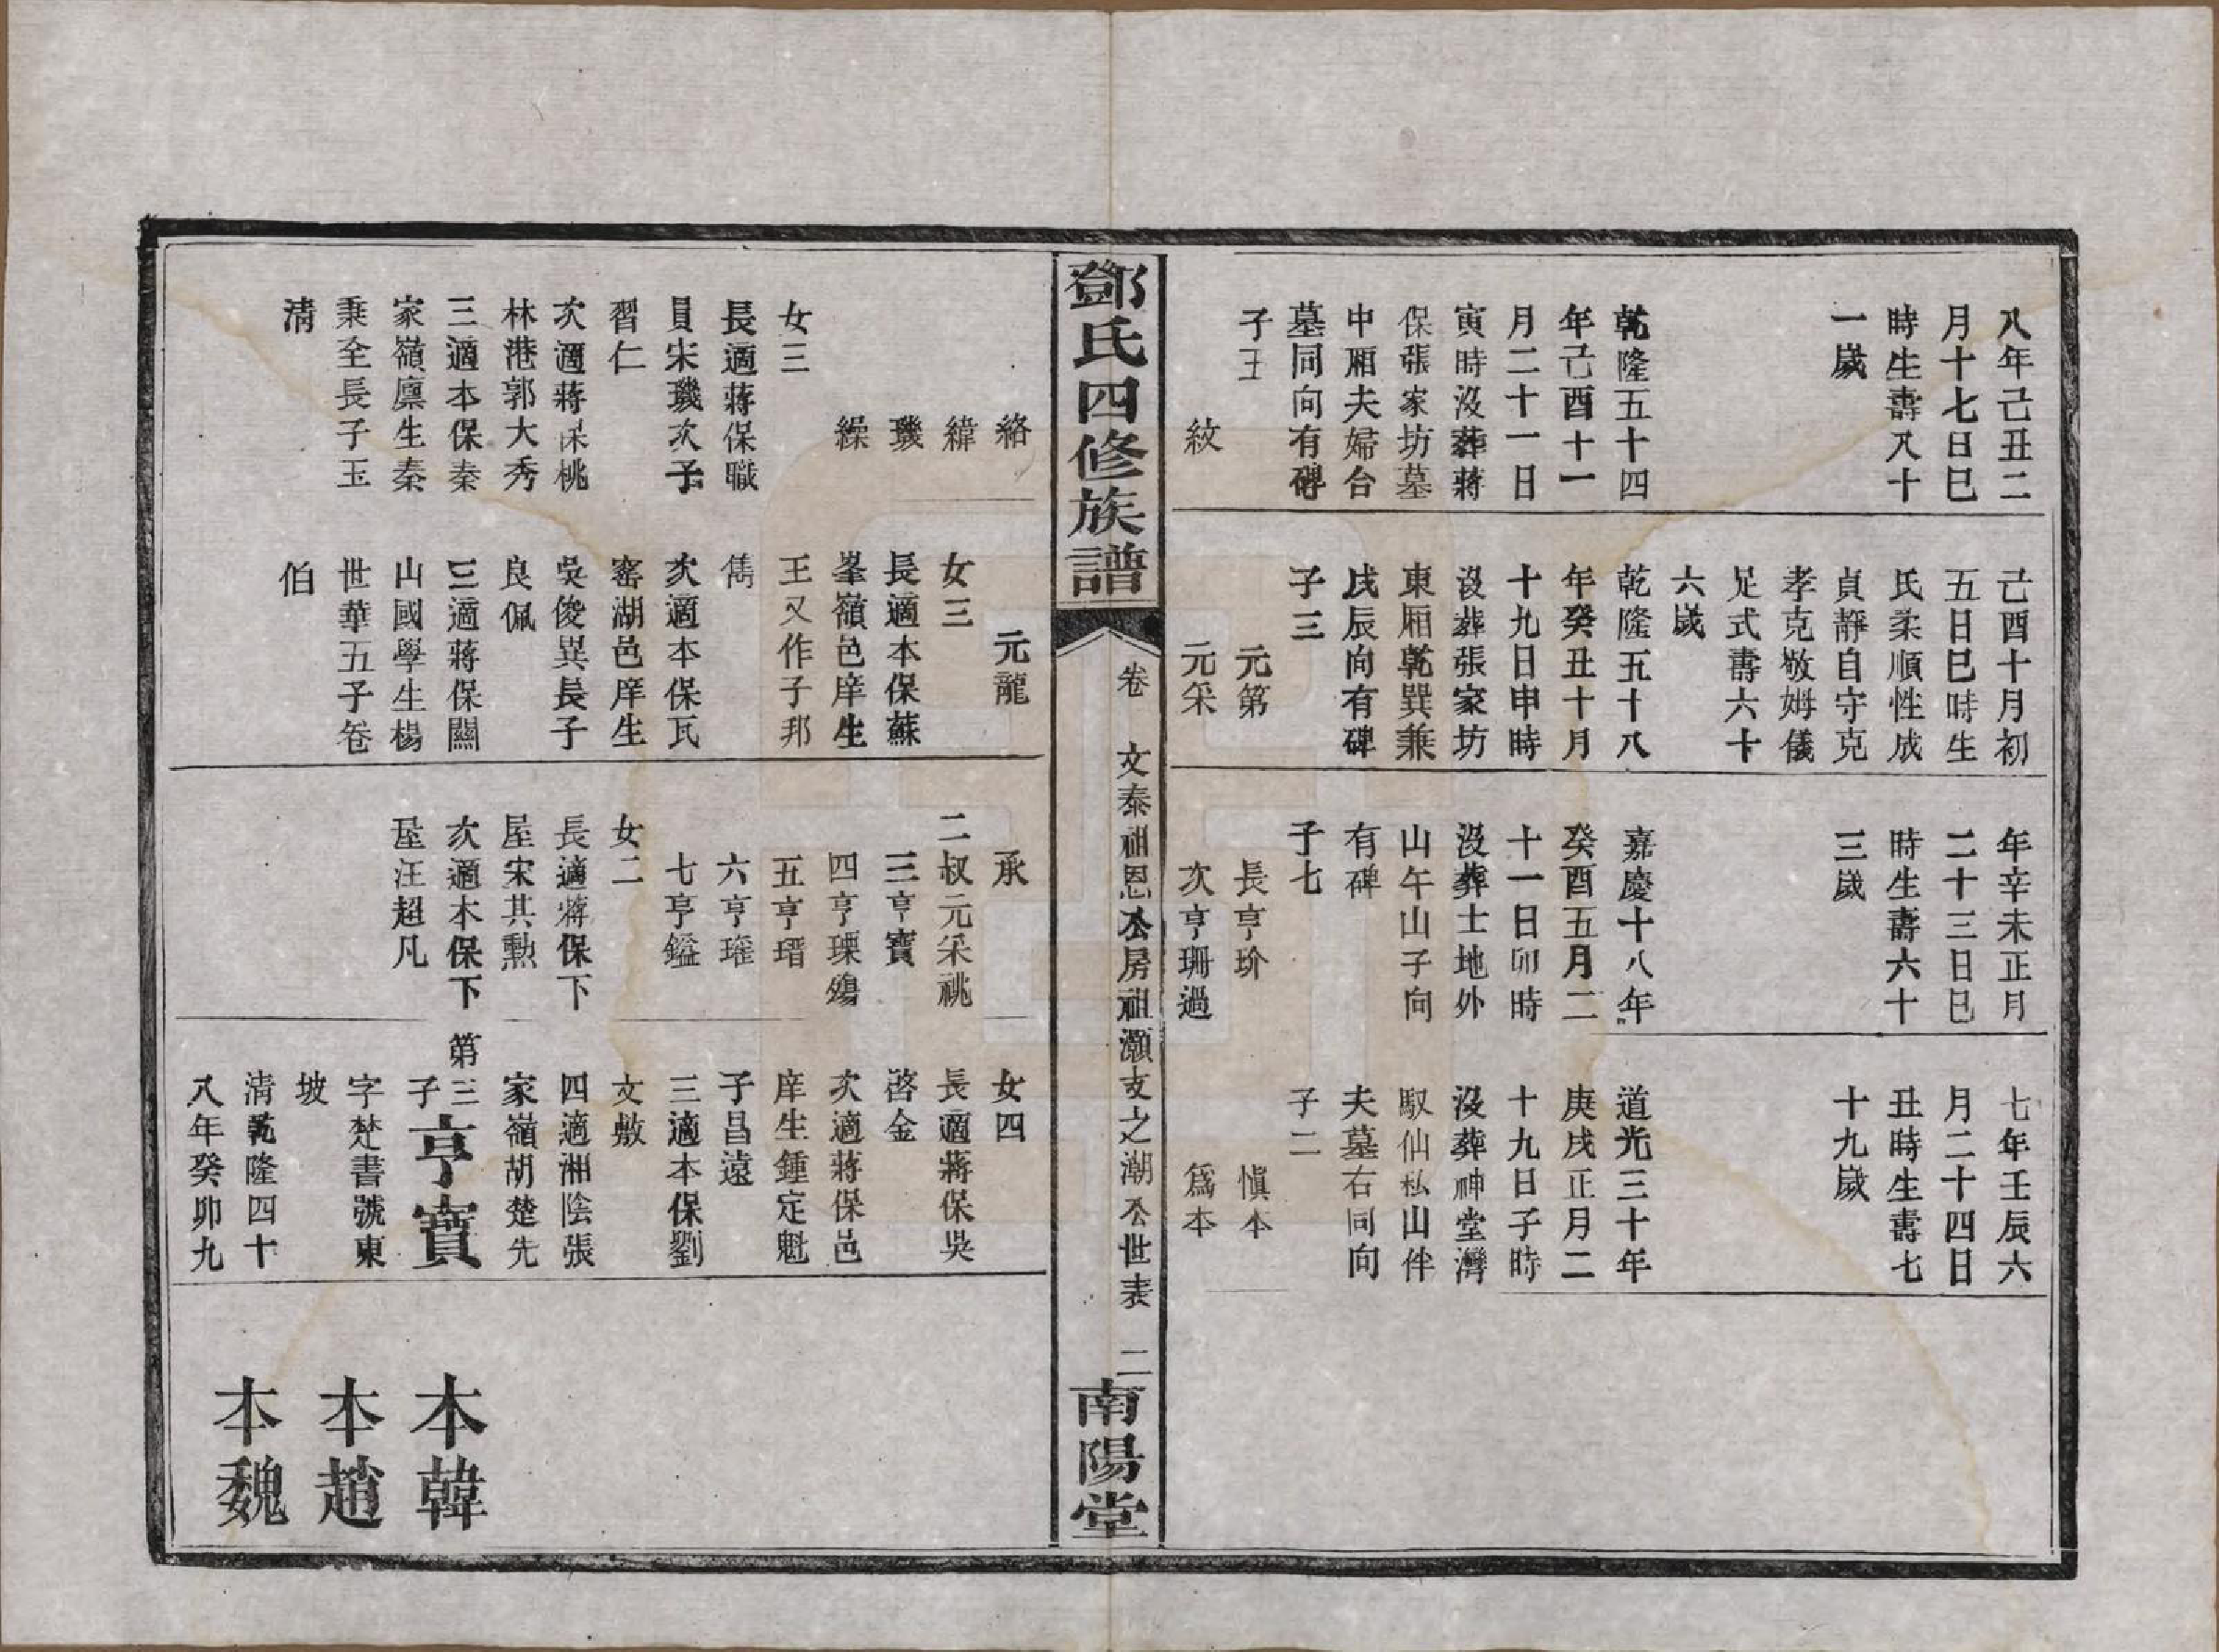 八年己丑二
月十七日巳
時生壽八十
一歲
乾隆五十四
年己酉十一
月二十一日
寅時沒葬蔣
保張家坊墓
中厢夫婦合
墓同向有碑
子五
紋
己酉十月初
五日巳時生
氏柔順性成
貞靜自守克
孝克敬姆儀
足式壽六十
六歲
乾隆五十八
年癸丑十月
十九日申時
沒葬張家坊
東厢乾巽兼
戌辰向有碑
子三
元第
元采
年辛未正月
二十三日巳
時生壽六十
三歲
嘉慶十八年
癸酉五月二
十一日卯時
沒葬土地外
山午山子向
有碑
子七
長亨玠
次亨珊過
七年壬辰六
月二十四日
丑時生壽七
十九歲
道光三十年
庚戌正月二
十九日子時
沒葬神堂灣
馭仙私山伴
夫墓右同向
子二
慎本
爲本
鄧氏四修族譜
卷 文泰祖恩公房祖灝支之潮公世表 二
南陽堂
絡
緯
璣
繰
女三
長適蔣保職
員宋璣次子
習仁
次適蔣保桃
林港郭大秀
三適本保秦
家嶺廩生秦
秉全長子玉
清
元龍
女三
長適本保蘇
峯嶺邑庠生
王又作子邦
儁
次適本保瓦
窑湖邑庠生
吳俊異長子
良佩
三適蔣保關
山國學生楊
世華五子卷
伯
承
二叔元采祧
三亨寶
四亨瑮殤
五亨瑨
六亨瓘
七亨鎰
女二
長適蔣保下
屋宋其勲
次適本保下
屋汪超凡
女四
長適蔣保吳
啓金
次適蔣保邑
庠生鍾定魁
子昌遠
三適本保劉
文敷
四適湘陰張
家嶺胡楚先
第三子亨寶
字楚書號東
坡
清乾隆四十
八年癸卯九
本韓
本趙
本魏